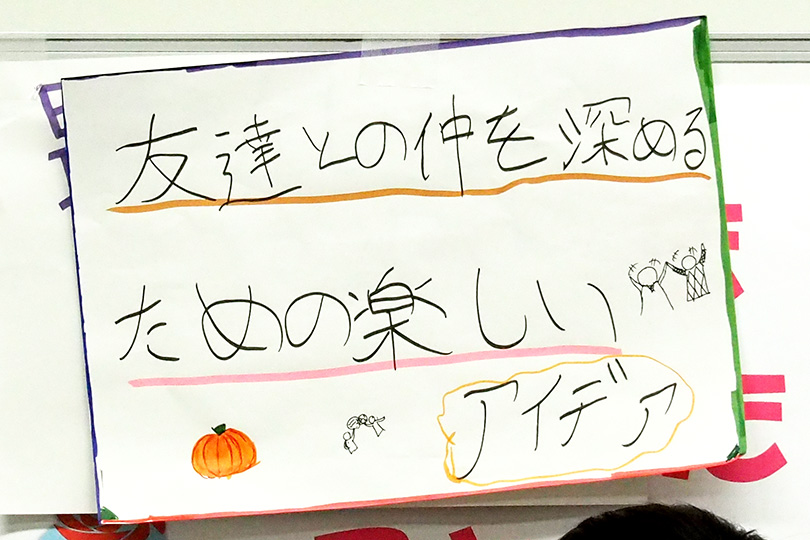 友達との仲を深める
ための楽しい
アイデア